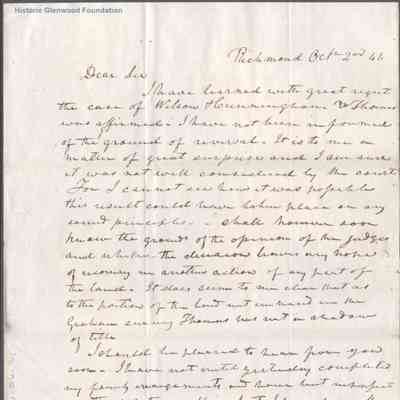 Historic Glenwood Foundation
Richmond Octr 2nd 41.
Dear Sir
I have learned with great regret
the case of Wilson & Cunningham v Thomas
was affirmed. I have not been informed
of the ground of reversal. It is to me a
matter of great surprise and I am sure
it was not well considered by the court
For I cannot see how it was possible
this result could have taken place on any
sound principles. I shall however soon
know the grounds of the opinion of the judges
and whether the decision leaves any hope
of recovery in another action of any part of
the land. It does seem to me clear that as
to the portion of the land not in the
Graham survey Thomas has not a shadow
of title
I should be pleased to hear from you
soon. I have not until yesterday completed
my family arrangements and have but